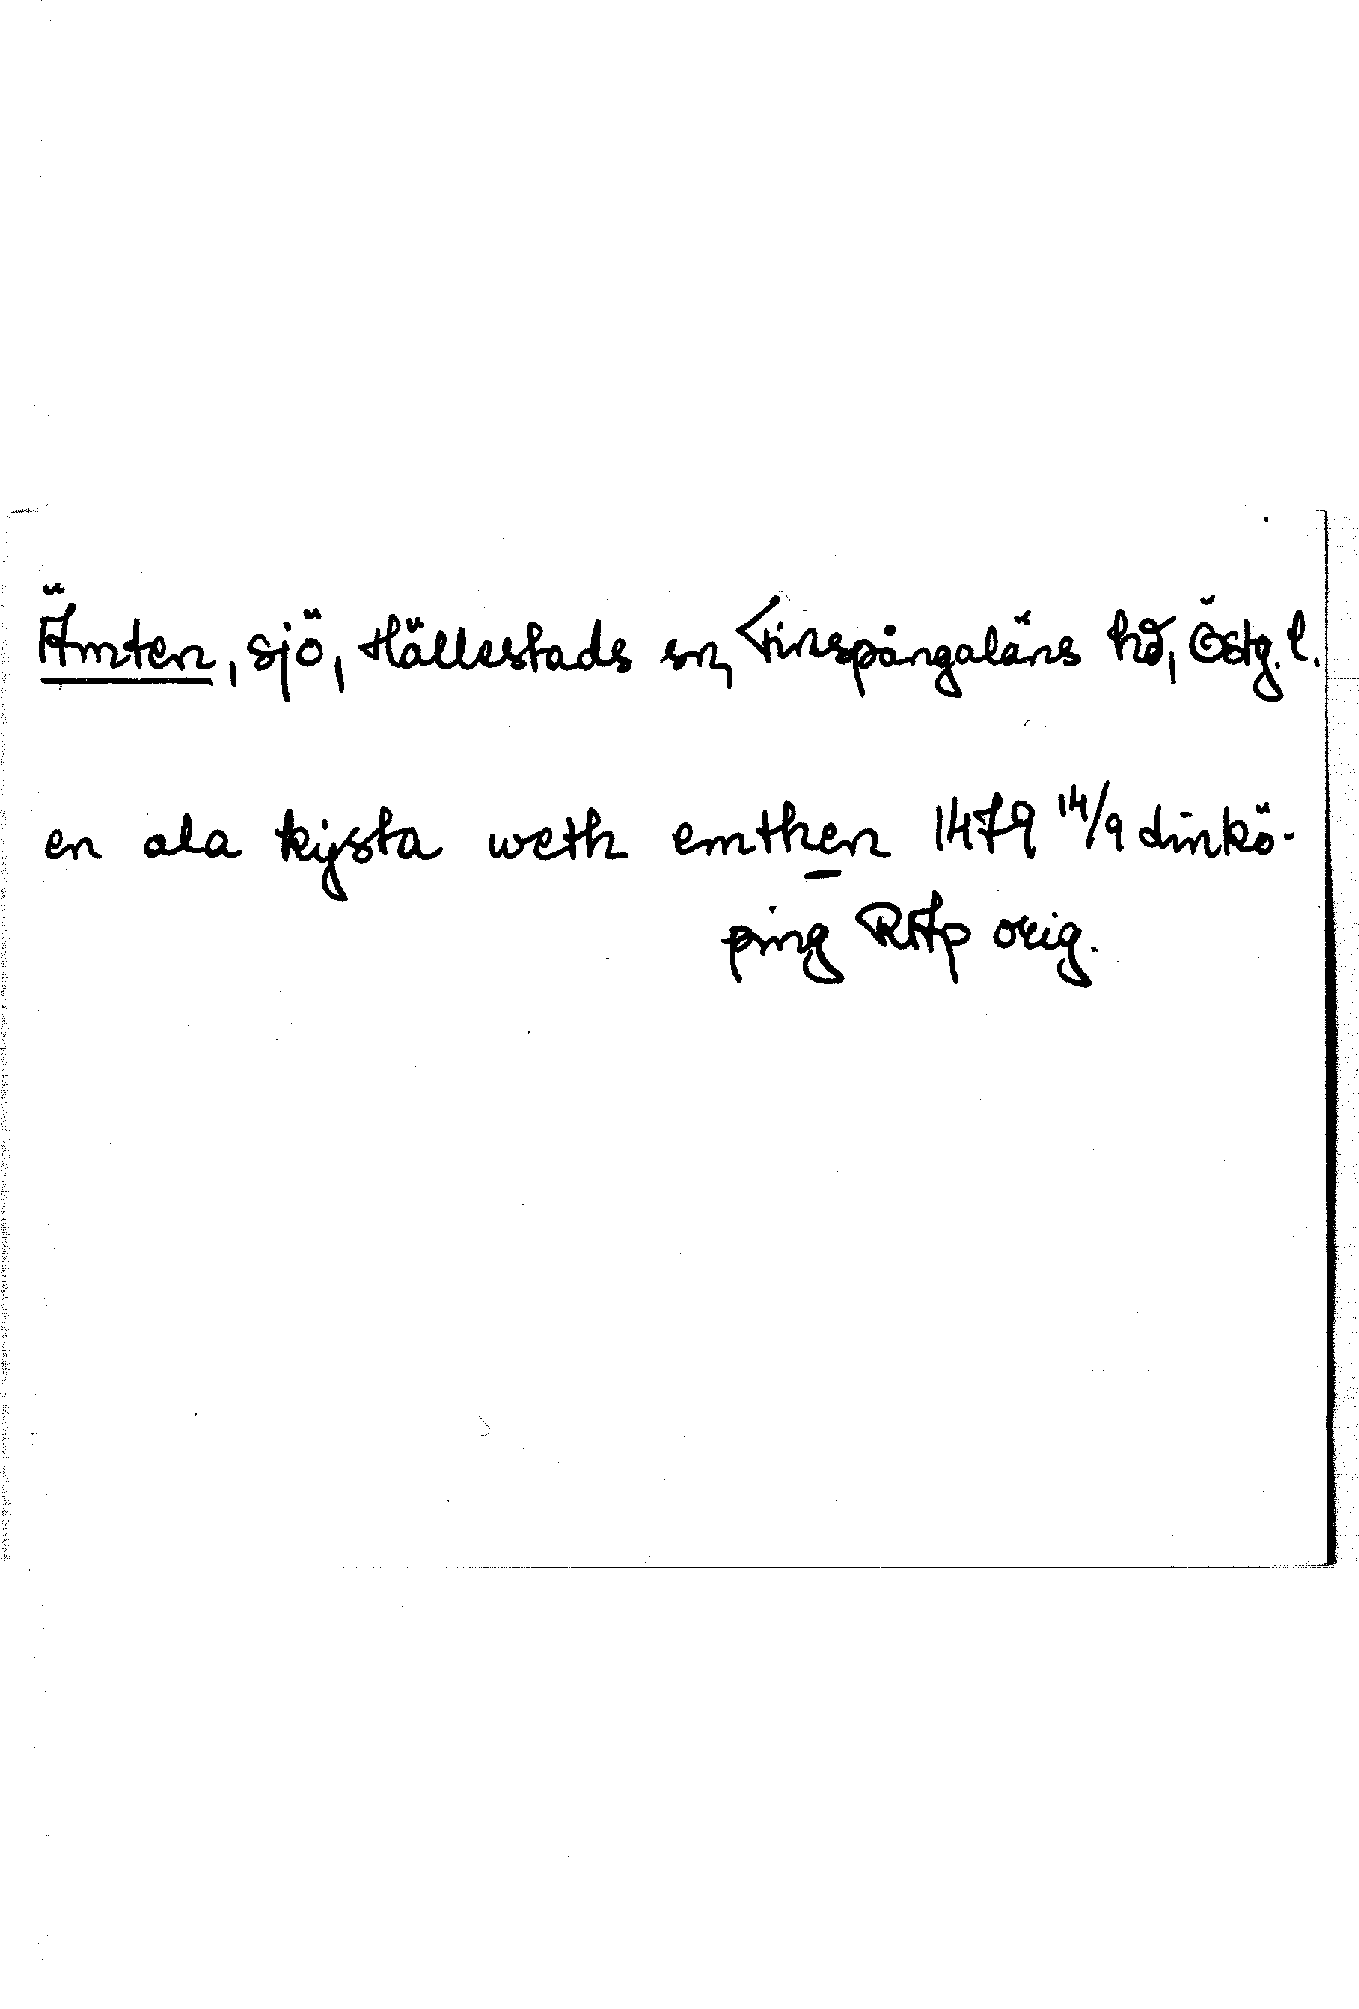 Ämten, sjö, Hällestads sn, Finspångaläns hd, Östg. l.
en ala kysta weth emthen 1479 14/9 Linkö-
ping RAp orig.